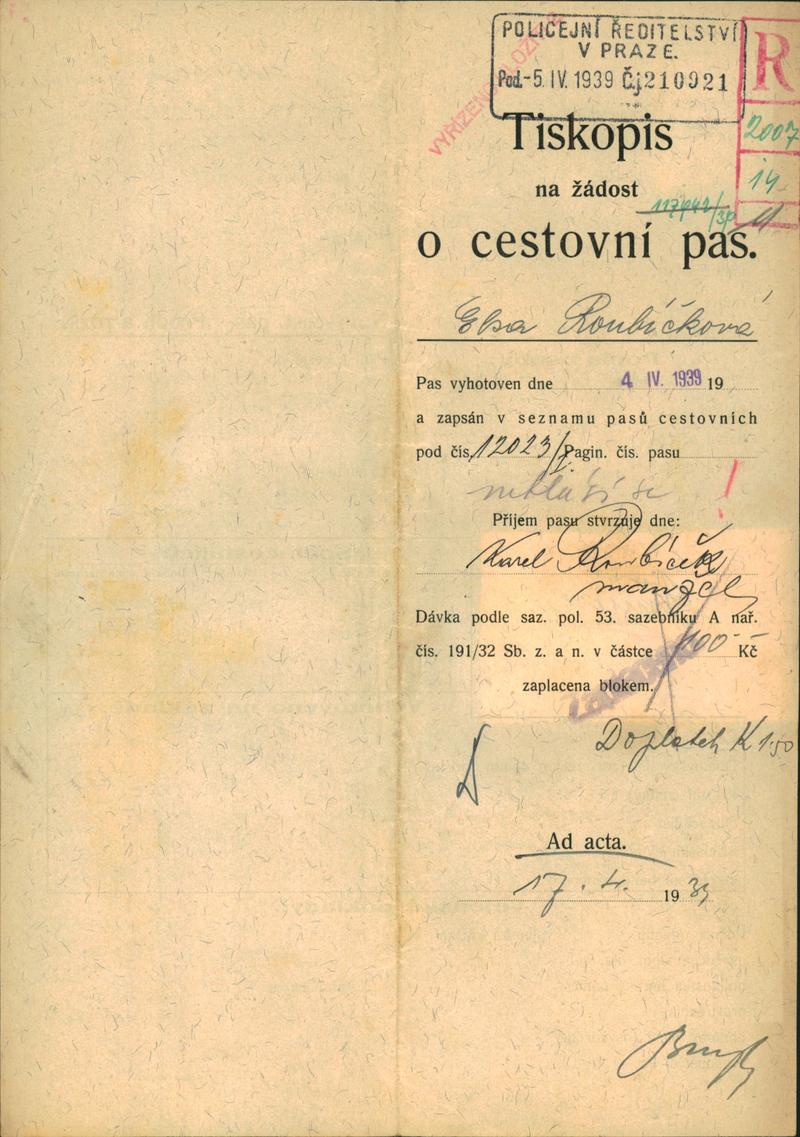 POLICEJNÍ ŘEDITELSTVÍ
V PRAZE.
Pod. -5. IV. 1939 Č.j. 210921
R
2007
14
VYŘÍZENO
Tiskopis
na žádost
o cestovní pas.
Elsa Roubíčková
Pas vyhotoven dne 4 IV. 1939 19
a zapsán v seznamu pasů cestovních
pod čís. 12023/I. Pagin. čís. pasu
nehlásí se !
Příjem pasu stvrzuje dne:
Karel Roubíček
manžel
Dávka podle saz. pol. 53. sazebníku A nař.
čís. 191/32 Sb. z. a n. v částce 100- Kč
zaplacena blokem.
Doplatek K 1.50
Ad acta.
17. 4. 1939